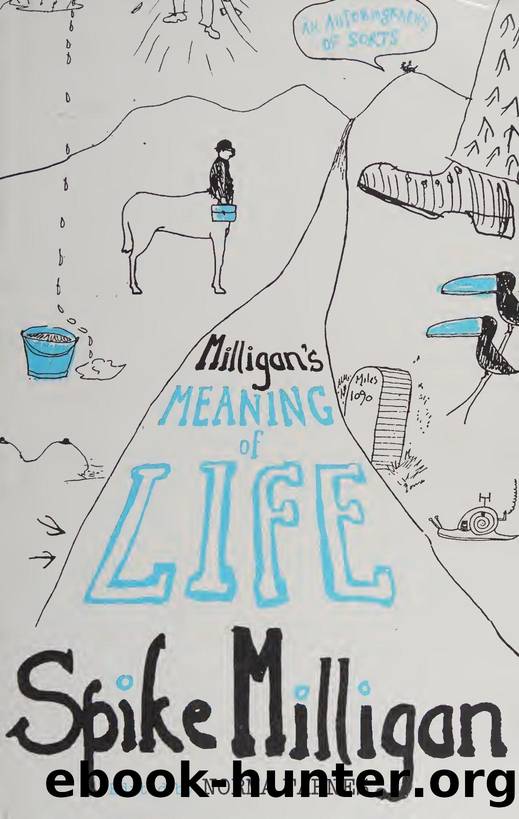 AN AUTOBIOGRAPHY
OF SORTS
Miles
1090
Milligan's
MEANING
of
LIFE
Spike Milligan
NORMA FARNES
ebook-hunter.org